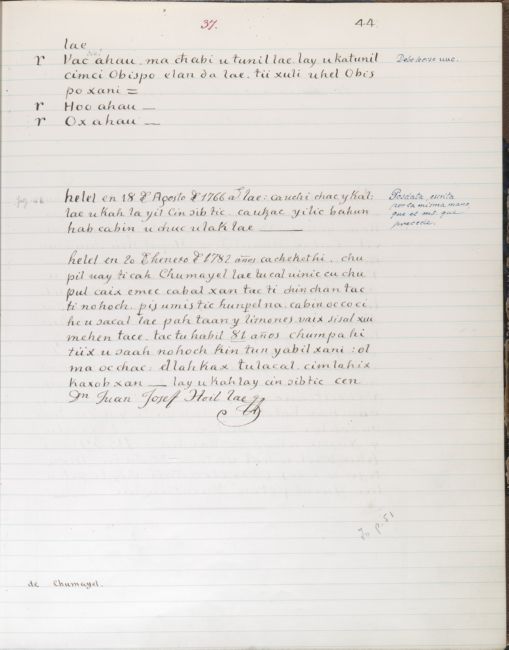 37.
44
lae
r Vac ahau, ma chabi u tunil lae. lay u katunil
Debe ser uac.
cimci Obispo elan da lae. tii xuli uhel Obis
po xani =
r Hoo ahau —
r Ox ahau —
helel en 18 de Agosto de 1766 as lae: cauchi chac y kal:
lae u kahlayil lin sibtic. caukac yilic bahun
hab cabin u chuc u lak lae —
Posdata escrita
por la misma mano,
que el ms. que
precede.
helel en 20 Ehenero de 1782 años cachekethi. chu
pil uay ti cah Chumayel lae tu cal uinic cu chu
pul caix emec cabal xan tac ti chin chan tac
ti nohoch. pis u mis tic hunpel na. cabin oc coci
he u sacal lae pah taan y limones. vaix sisal xiu
mehen tace. tac tu habil 81 años chumpahi
tiix u saah nohoch kin tun yabil xani: ol
ma oc chac: ellah kax tulacal. cimlahix
kaxob xan — lay u kahlay cin sibtic cen
Dn Juan Josef Hoil lae
Jn p. 51
de Chumayel.